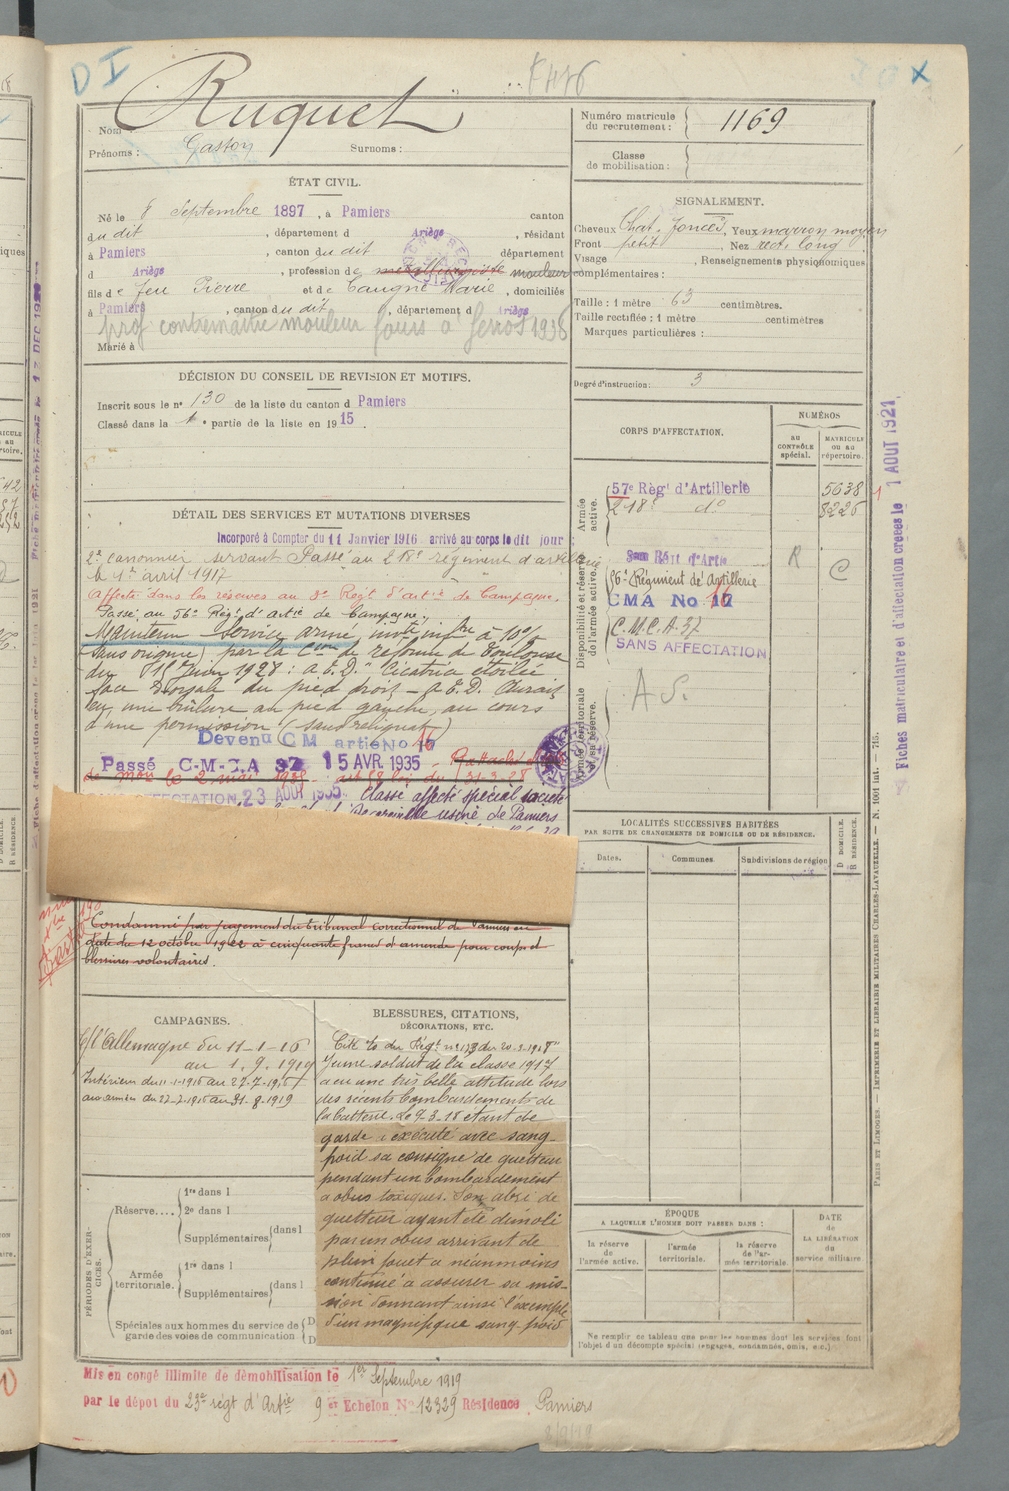 D I
Ruquet
Nom :
Prénoms : Gaston Surnoms :
Numéro matricule du recrutement : 1169
Classe de mobilisation :
ÉTAT CIVIL.
Né le 8 Septembre 1897, à Pamiers canton
du dit, département d Ariège, résidant
à Pamiers, canton du dit département
d Ariège, profession de mouleur
fils de feu Pierre et de Marie, domiciliés
à Pamiers, canton du dit, département d Ariège
prof contremaitre mouleur 1938
Marié à
SIGNALEMENT.
Cheveux Chat. foncés, Yeux marron moyen
Front petit Nez rect. long
Visage, Renseignements physionomiques
complémentaires :
Taille : 1 mètre 63 centimètres.
Taille rectifiée : 1 mètre centimètres
Marques particulières :
Degré d'instruction : 3
DÉCISION DU CONSEIL DE REVISION ET MOTIFS.
Inscrit sous le n° 130 de la liste du canton d Pamiers
Classé dans la 1e partie de la liste en 1915.
DÉTAIL DES SERVICES ET MUTATIONS DIVERSES
Incorporé à Compter du 11 Janvier 1916 arrivé au corps le dit jour
2e canonnier servant Passé au 218e régiment d'artillerie
le 1er avril 1917
Affecté dans les réserves au Régt d'artie de Campagne.
Passé au 56e Régt d'artie de Campagne.
Maintenu service armé, invté infre à 10%
(sans origine) par la Cion de réforme de Toulouse
du 15 Juin 1928 : a.E.D. " Cicatrice étoilée
face Dorsale du pied droit – a.E.D. Aurait
eu une brûlure au pied gauche, au cours
d'une permission (sans reliquat)
Devenu C M artie No 16
Passé C-M-C.A 37 15 AVR. 1935
de mou le 2 mai 1938 art 58 loi du 31-3-28
AFFECTATION 23 AOUT 1935 Classé affecté spécial société
usine de Pamiers
Condamné par jugement du tribunal correctionnel de Pamiers en
date du 12 octobre 1922 à cinquante francs d'amende pour coups et
blessures volontaires.
CORPS D'AFFECTATION.
NUMÉROS
AU CONTRÔLE spécial.
MATRICULE OU AU répertoire.
Armée active.
57e Règt d'Artillerie 5638
218e do 8226
Disponibilité et réserve de l'armée active.
Régt d'Artie
56e Régiment de Artillerie
CMA No 16
C.M.C.A. 37
SANS AFFECTATION
R
C
Armée territoriale et sa réserve.
A S.
Fiches matriculaire et d'affectation créées le 1 AOUT 1921
LOCALITÉS SUCCESSIVES HABITÉES
PAR SUITE DE CHANGEMENTS DE DOMICILE OU DE RÉSIDENCE.
Dates. Communes. Subdivisions de région
D DOMICILE. R RÉSIDENCE.
CAMPAGNES.
C/ l'Allemagne du 11-1-16
au 1.9.1919
Intérieur du 11-1-1916 au 27-7-1916
aux armées du 22-7-1916 au 31-8-1919
BLESSURES, CITATIONS,
DÉCORATIONS, ETC.
Cité à l'o du Régt n° 173 du 20-3-1918 "
Jeune soldat de la classe 1917
a eu une très belle attitude lors
des récents bombardements de
la batterie. Le 9-3-18 étant de
garde a exécuté avec sang-
froid sa consigne de guetteur
pendant un bombardement
à obus toxiques. Son abri de
guetteur ayant été démoli
par un obus arrivant de
plein fouet a néanmoins
continué à assurer sa mis-
sion donnant ainsi l'exemple
d'un magnifique sang-froid
PÉRIODES D'EXERCICES.
Réserve....
1re dans l
2e dans l
Supplémentaires dans l
Armée territoriale.
1re dans l
Supplémentaires dans l
Spéciales aux hommes du service de garde des voies de communication D D
ÉPOQUE
A LAQUELLE L'HOMME DOIT PASSER DANS :
la réserve de l'armée active.
l'armée territoriale.
la réserve de l'armée territoriale.
DATE de LA LIBÉRATION du service militaire.
Ne remplir ce tableau que pour les hommes dont les services font
l'objet d'un décompte spécial (engagés, condamnés, omis, etc.)
PARIS ET LIMOGES. — IMPRIMERIE ET LIBRAIRIE MILITAIRES CHARLES-LAVAUZELLE. — N. 1001 int. — 715.
Mis en congé illimité de démobilisation le 1er Septembre 1919
par le dépot du 23e régt d'Artie 9 et Echelon No 12329 Résidence Pamiers